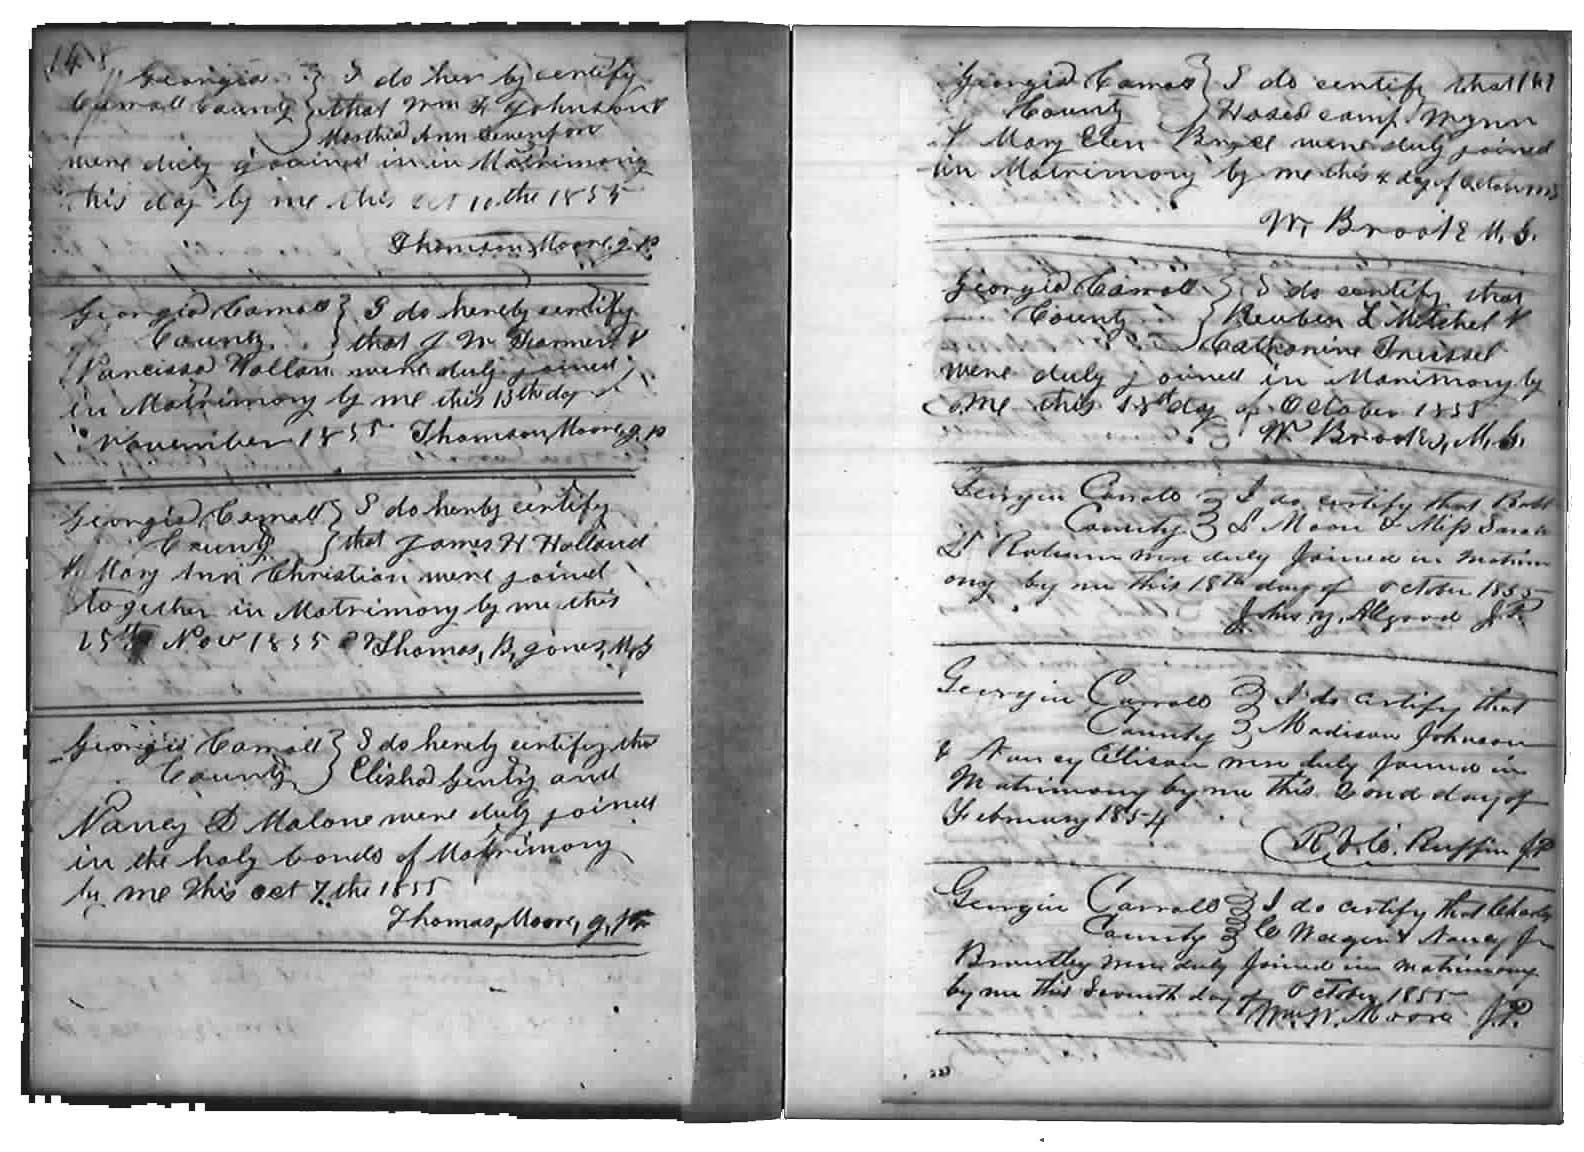 148
Georgia } I do her by certify
Carroll County } that Wm H Johnson &
Martha Ann
were duly joained in in Matrimony
this day by me this Oct 10 the 1855
Thomson, Moore, J. P
Georgia Carroll } I do hereby certify
County } that J W Farmer &
Narcissa Hollan were duly joined
in Matrimony by me this 15th day
November 1855 Thomson, Moore, J. P
Georgia Carroll } I do hereby certify
County } that James H Holland
& Mary Ann Christian were joined
together in Matrimony by me this
25th Nov 1855 Thomas, B, Jones, M G
Georgia Carroll } I do hereby certify tha
County } Elisha Gentry and
Nancy D Malone were duly joined
in the holy bonds of Matrimony
by me this oct 7 the 1855
Thomas, Moore, J, P
Georgia Carroll } I do certify that
County } camp Wynn
& Mary Elen were duly joined
in Matrimony by me this 4 day of
W. Brooks M. G.
Georgia Carroll } I do certify that
County } Reuben L Mitchel &
Catharine Trussel
were duly joined in Marimony by
me this 18th day of October 1855
W. Brooks, M, G.
Georgia Carroll } I do certify that
County } L Moon & Miss Sarah
were duly Joined in Matrim
ony by me this 18th day of October 1855
John M, Allgood J. P.
Georgia Carroll } I do certify that
County } Madison Johnson
& Nancy Ellison were duly joined in
Matrimony by me this 2ond day of
February 1854
Ruffin JP
Georgia Carroll } I do certify that Charles
County } C & Nancy Jn
Brantley were duly Joined in matrimony
by me this Seventh day of October 1855
Wm W. Moore J.P.